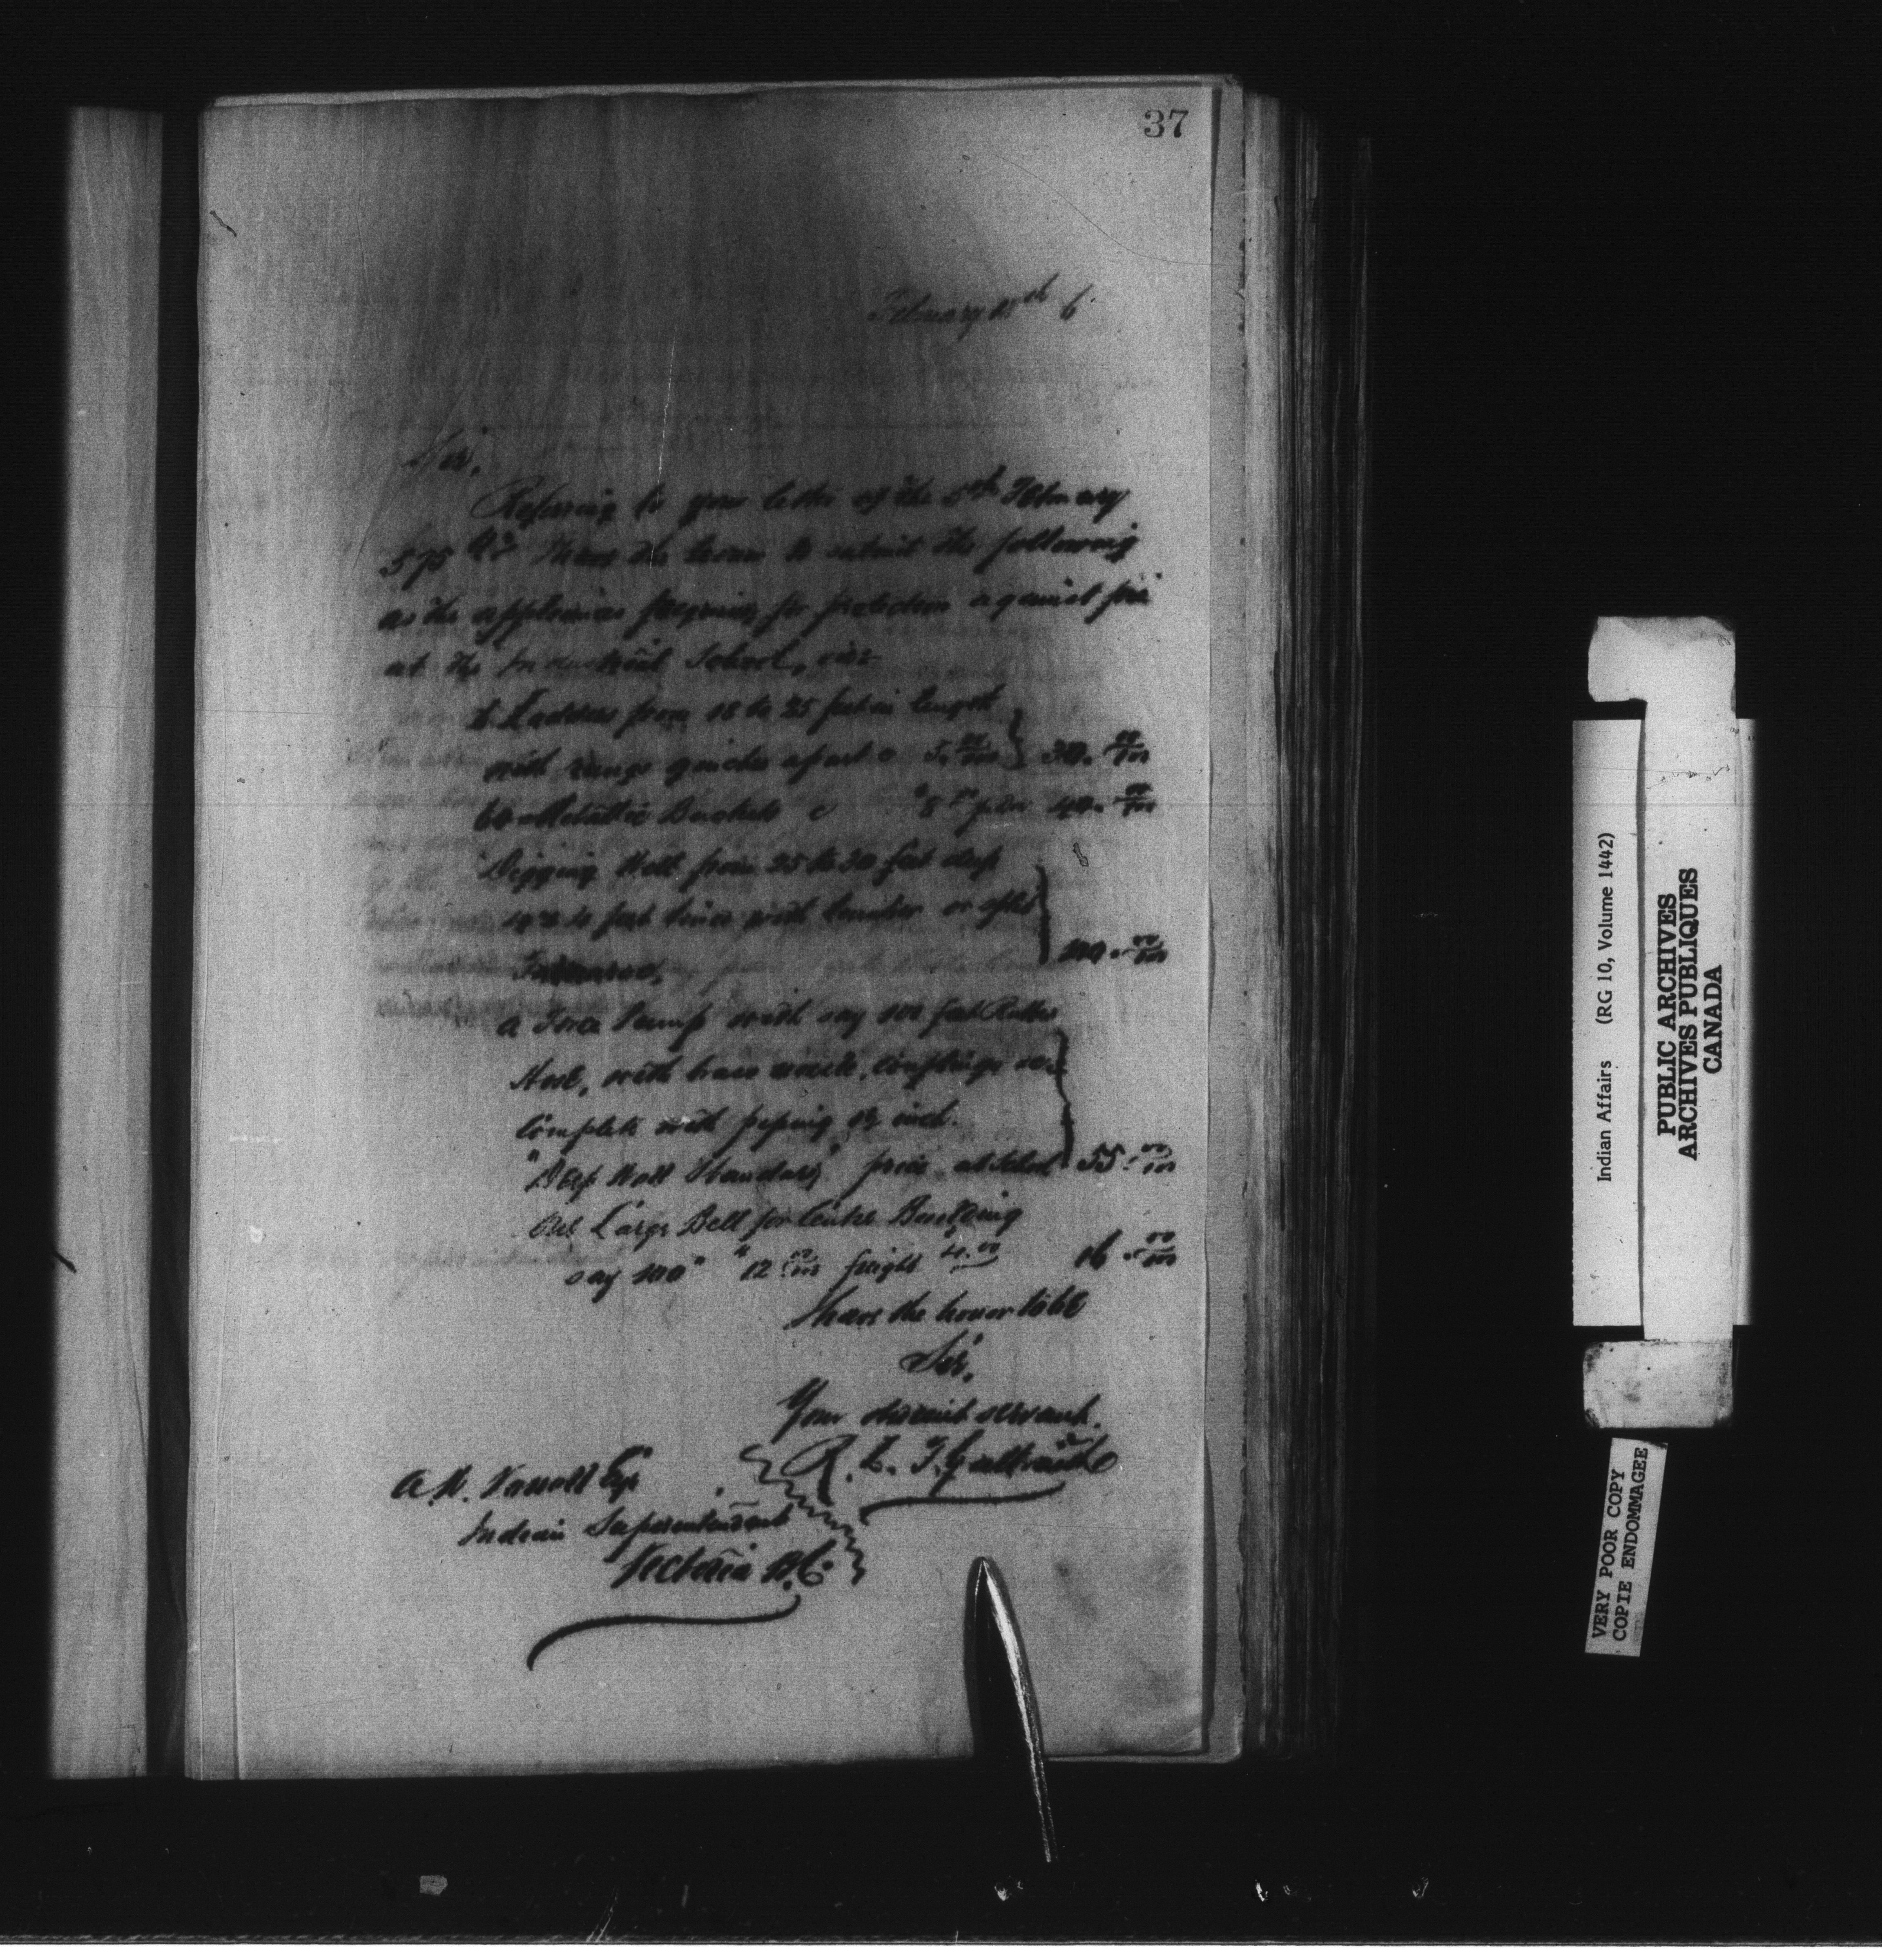 37
February th 6.
Sir,
Referring to your letter of the 5th February
575 I have the honor to submit the following
as the appliances for protection against fire
at the Industrial School, viz:
6 Ladders from 16 to 25 feet in length
with rungs 9 inches apart @ 5. 00/100 } 30. 00/100
60 Metallic Buckets @ 8 00 p doz 40. 00/100
Digging Well from 25 to 30 feet deep
feet with lumber or
100. 00/100
a Force Pump with say 100 feet Rubber
Hose, with brass nozzle, couplings
Complete with piping 1½ inch.
"Deep Well Standard" price at School 55. 00/100
One Large Bell for Centre Building
say 100" "12 00/100 freight 4.00 16. 00/100
I have the honor to be
Sir,
Your obedient servant.
R. L. T. Galbraith
A. W. Vowell Esqr
Indian Superintendent
Victoria B.C.
Indian Affairs (RG 10, Volume 1442)
PUBLIC ARCHIVES
ARCHIVES PUBLIQUES
CANADA
VERY POOR COPY
COPIE ENDOMMAGEE